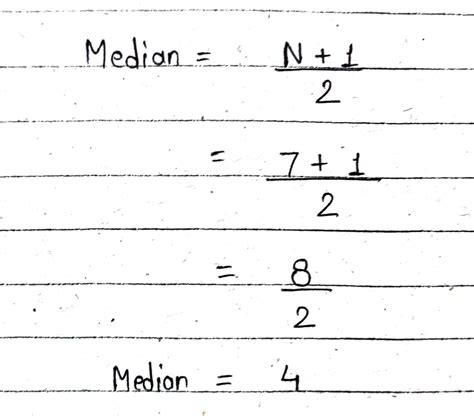 Median = N + 1
2
= 7 + 1
2
= 8
2
Median = 4